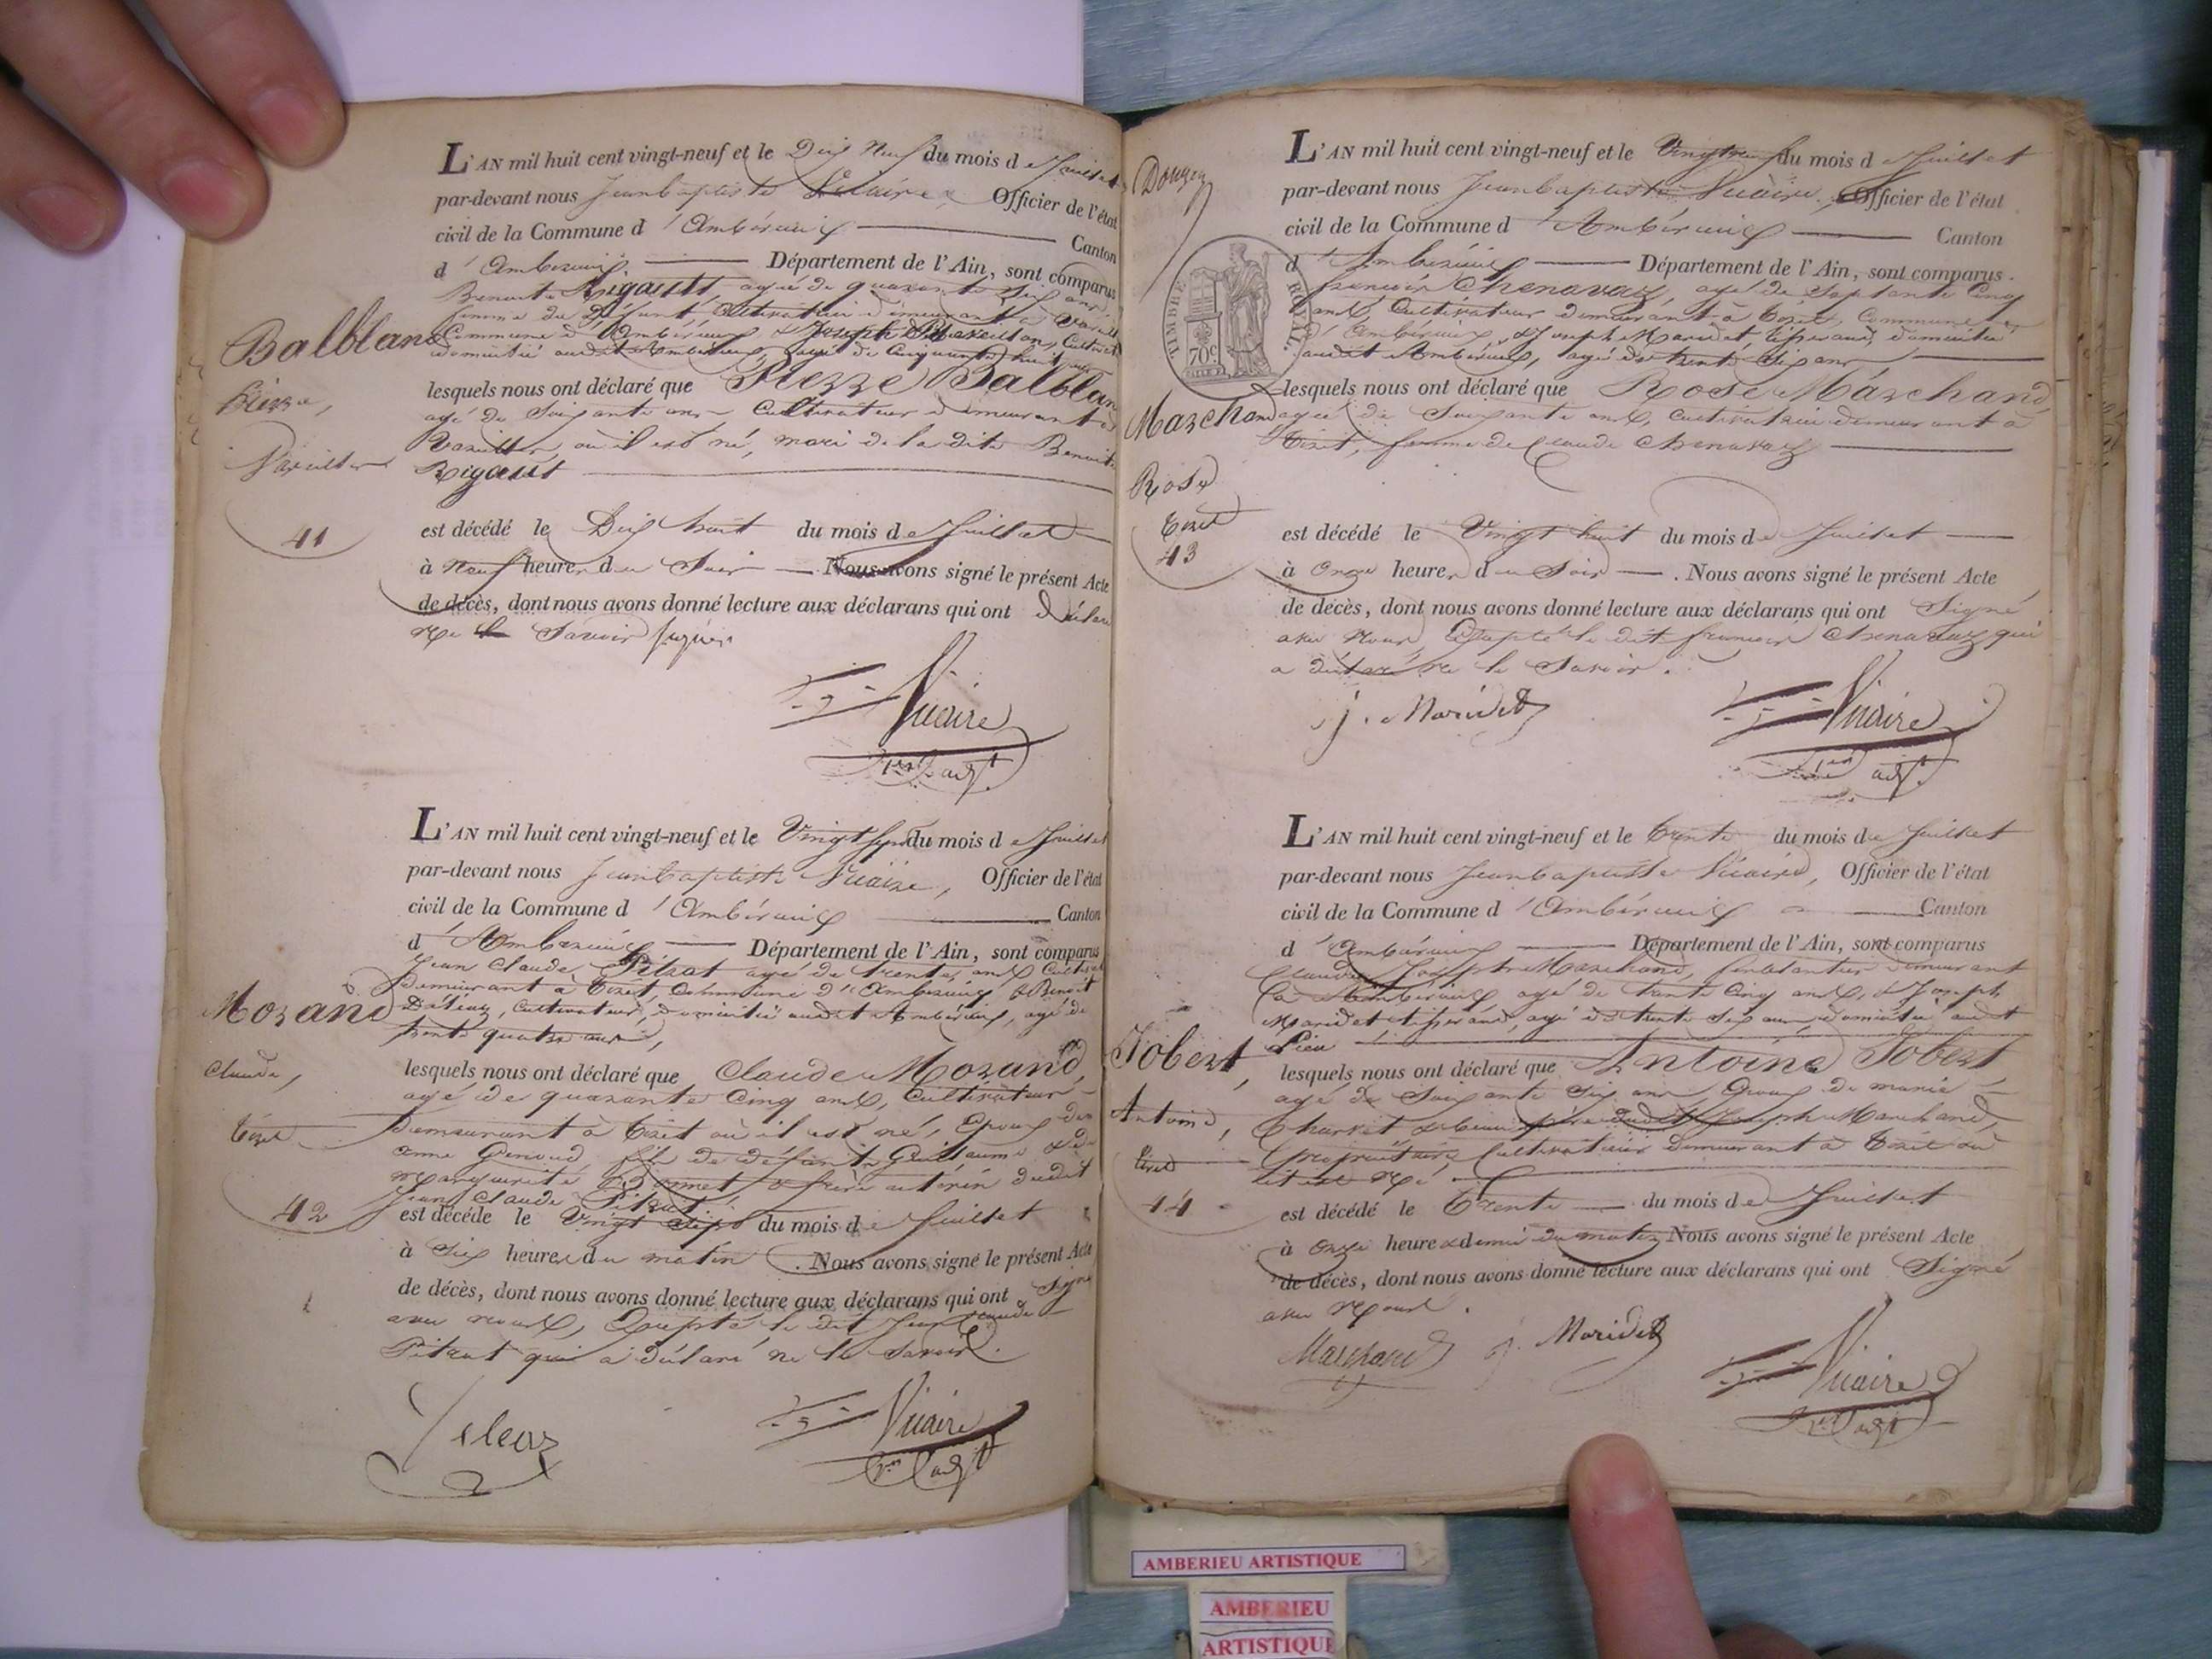 L'AN mil huit cent vingt-neuf et le Dix Neuf du mois de Juillet
par-devant nous Jean baptiste Vicaire, Officier de l'état
civil de la Commune d'Ambérieux Canton
d'Ambérieux Département de l'Ain, sont comparus
Benoite Rigault agée de quarante six ans,
femme du Défunt, Cultivatrice demeurant à Vareilles
Commune d'Ambérieux & Joseph Cultivateur
domicilié audit Ambérieux, agé de Cinquante huit ans
Balblanc
Pierre,
Vareilles
41
lesquels nous ont déclaré que Pierre Balblanc
agé de Soixante ans Cultivateur demeurant à
Vareilles, où il est né, mari de la dite Benoite
Rigault
est décédé le Dix huit du mois de Juillet
à Neuf heures du Soir. Nous avons signé le présent Acte
de décès, dont nous avons donné lecture aux déclarans qui ont Déclaré
Ne le Savoir
Vicaire
1er adjt
L'AN mil huit cent vingt-neuf et le Vingt Sept du mois de Juillet
par-devant nous Jean baptiste Vicaire, Officier de l'état
civil de la Commune d'Ambérieux Canton
d'Ambérieux Département de l'Ain, sont comparus
Jean Claude Pitrat agé de trente ans Cultivateur
demeurant à Tiret, Commune d'Ambérieux & Benoit
Cultivateur, domicilié audit Ambérieux, agé de
trente quatre ans,
Morand
Claude,
Tiret
42
lesquels nous ont déclaré que Claude Morand,
agé de quarante Cinq ans, Cultivateur
Demeurant à Tiret où il est né, Epoux de
anne Genoud, fils de défunts Guillaume & de
Marguerite & frère utérin dudit
Jean Claude Pitrat
est décédé le Vingt Sept du mois de Juillet
à Six heures du matin. Nous avons signé le présent Acte
de décès, dont nous avons donné lecture aux déclarans qui ont Signé
avec nous, Excepté le dit Jean Claude
Pitrat qui a déclaré ne le Savoir.
Vicaire
1er adjt
Douzey
L'AN mil huit cent vingt-neuf et le Vingt neuf du mois de Juillet
par-devant nous Jean baptiste Vicaire, Officier de l'état
civil de la Commune d'Ambérieux Canton
d'Ambérieux Département de l'Ain, sont comparus
francois Chenavaz, agé de Soixante Cinq
ans, Cultivateur demeurant à Tiret, Commune
d'Ambérieux, & Joseph Maridet, tisserand, domicilié
audit Ambérieux, agé de trente Six ans
TIMBRE ROYAL.
70c
Marchand
Rose
Tiret
43
lesquels nous ont déclaré que Rose Marchand
agée de Soixante ans, Cultivatrice demeurant à
Tiret, femme de Claude Chenavaz
est décédé le Vingt huit du mois de Juillet
à Onze heures du Soir. Nous avons signé le présent Acte
de décès, dont nous avons donné lecture aux déclarans qui ont Signé
avec Nous, Excepté le dit francois Chenavaz qui
a déclaré ne le Savoir.
j. Maridet
Vicaire
1er adjt
L'AN mil huit cent vingt-neuf et le Trente du mois de Juillet
par-devant nous Jean baptiste Vicaire, Officier de l'état
civil de la Commune d'Ambérieux Canton
d'Ambérieux Département de l'Ain, sont comparus
Claude Joseph Marchand, ferblantier demeurant
à Ambérieux, agé de trente Cinq ans, & Joseph
Maridet tisserand, agé de trente Six ans domicilié audit
Lieu
Jobert,
Antoine,
Tiret
44
lesquels nous ont déclaré que Antoine Jobert
agé de Soixante Six ans Epoux de marie
Charvet & beau père dudit Joseph Marchand,
Propriétaire Cultivateur Demeurant à Tiret où
il est Né
est décédé le Trente du mois de Juillet
à Onze heures & demie du matin Nous avons signé le présent Acte
de décès, dont nous avons donné lecture aux déclarans qui ont Signé
avec Nous.
Marchand
j. Maridet
Vicaire
1er adjt
AMBERIEU ARTISTIQUE
AMBERIEU
ARTISTIQUE